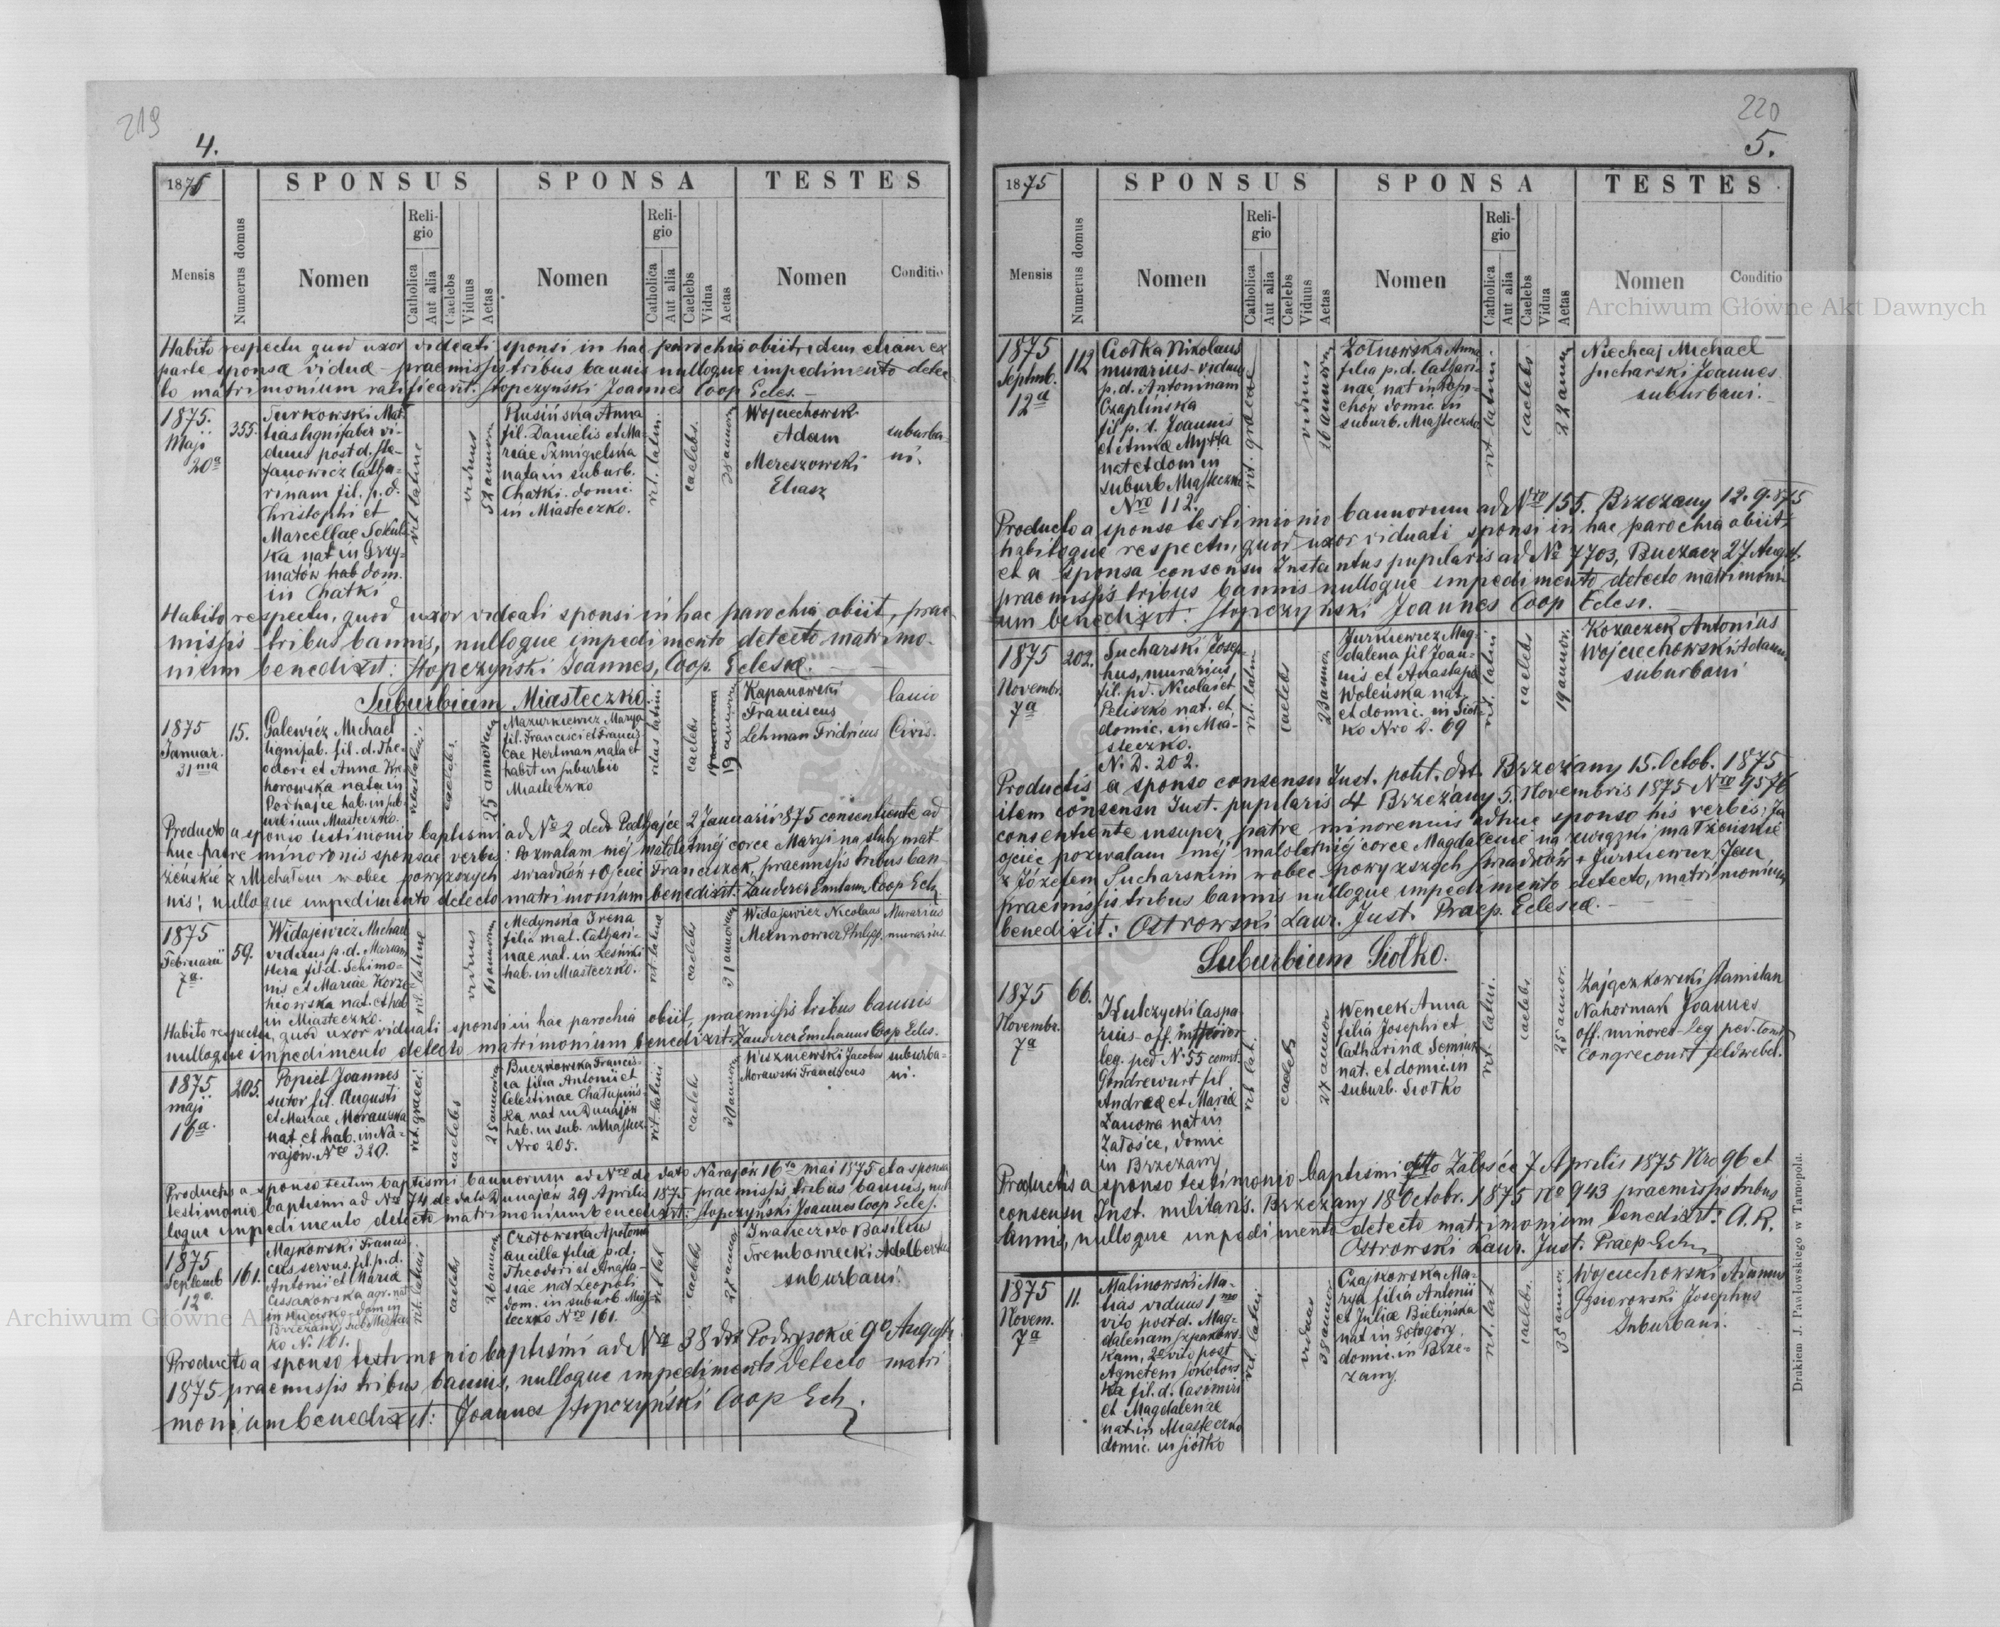 219
4.
1875
SPONSUS
SPONSA
TESTES
Mensis
Numerus domus
Nomen
Religio
Catholica
Aut alia
Caelebs
Viduus
Aetas
Nomen
Religio
Catholica
Aut alia
Caelebs
Vidua
Aetas
Nomen
Conditio
Habito respectu quod uxor viduati sponsi in hac parochia obiit idem etiam ex
parte sponsa vidua praemissis tribus bannis nulloque impedimento detec
to matrimonium ratificavit. Stopczyński Joannes Coop Eccles.
1875.
Maji
20a
355.
Turkowski Mat
hias lignifaber vi-
duus post d. Sta-
janowicz Catha-
rinam fil. p. d.
Christophi et
Marcellae Sokuls
ka nat in Grzy-
matów hab dom.
in Chatki
rit latine
viduus
52 annorum
Rusińska Anna
fil. Danielis et Ma
riae Szmigielska
nata in suburb.
Chatki. domic.
in Miasteczko.
rit. latin.
caelebs.
Wojciechowsk
Adam
Mereszowski
Eliasz
suburba-
ni.
Habito respectu, quod uxor viduati sponsi in hac parochia obiit, prae-
missis tribus bannis, nulloque impedimento detecto matrimo-
nium benedixit: Stopczyński Joannes, Coop. Eclesæ.
Suburbium Miasteczko
1875
Januar.
31ma
15.
Galewicz Michael
lignifab. fil. d. The-
odori et Anna Ko-
horowska nata in
Podhajce hab. in sub
urbium Miasteczko.
ritus latini
caelebs.
25 annorum
Mazurkiewicz Marya
fil. Francisci et Francis
cae Hertman nata et
habit in suburbio
Miasteczko
ritus latini
caelebs
19 annorum
Kapanowski
Franciscus
Lehman Fridricus
lanio
Civis.
Producto a sponso testimonio baptismi ad No 2 dedt Podhajce 2 Januarii 875 consentiente ad
huc patre minorenis sponsae verbis: Pozwalam mej małoletniej córce Maryi na śluby mał
żeńskie z Michałem wobec powyższych świadków + Ojciec Franciszek, praemissis tribus ban
nis, nulloque impedimento detecto matrimonium benedixit: Zauderer Emilian Coop Ecls
1875
Februarii
7a.
59.
Widajewicz Michael
viduus p. d. Marian
Hera fil d. Schimo-
nis et Mariae Korze
niowska nat. et hab
in Miasteczko.
rit. latine
viduus
61 annorum
Medynska Irena
filia nat. Cathari-
nae nat. in Lesniki
hab. in Miasteczko.
rit. latinus
caelebs
31 annorum
Widajewicz Nicolaus
Murarius
murarius.
Habito respectu, quod uxor viduati sponsi in hac parochia obiit, praemissis tribus bannis
nulloque impedimento detecto matrimonium benedixit: Zauderer Emilianus Coop Ecles.
1875
maji
16a.
205.
Popiel Joannes
sutor fil. Augusti
et Mariae Morawska
nat. et hab. in Na-
rajow. Nro 320.
rit. graeci
caelebs
25 annorum
Buczkowska Francis-
ca filia Antonii et
Celestinae Chatupińs
ka nat in Dunajów
hab. in sub. Miastecz
Nro 205.
rit. latini
caelebs
Wiszniewski Jacobus
Morawski Franciscus
suburba-
ni.
Productis a sponso testim baptismi bannorum ad Nro de dato Narajów 16ta mai 1875 et a sponsa
testimonio baptismi ad Nro 74 de dato Dunajow 29 Aprilis 1875 praemissis tribus bannis, nul
loque impedimento detecto matrimonium benedixit: Stopczyński Joannes Coop Ecles.
1875
Septemb
12a.
161.
Majkowski Francis
cus servus. fil. p. d.
Antonii et Maria
Cissakowska agr. nat
Brzeżany, sub. Miastecz
ko N. 161.
rit. latini
caelebs
26 annor
Czotowska Apolonia
ancilla filia p. d.
Theodori et Anasta-
siae nat Leopoli
dom. in suburb. Mias
teczko Nro 161.
rit lat
caelebs
Iwaneczko Basilius
Trembowiecki Adelbertus
suburbani.
Producto a sponso testimonio baptismi ad Nro 38 ddt Podwysokie 9o Augusti
1875 praemissis tribus bannis, nulloque impedimento detecto matri
monium benedixit: Joannes Stopczyński Coop Ecls.
220
5.
1875
SPONSUS
SPONSA
TESTES
Mensis
Numerus domus
Nomen
Religio
Catholica
Aut alia
Caelebs
Viduus
Aetas
Nomen
Religio
Catholica
Aut alia
Caelebs
Vidua
Aetas
Nomen
Conditio
Archiwum Główne Akt Dawnych
1875
Septmb.
12a
112
Ciotka Nikolaus
murarius viduus
p. d. Antoninam
Czaplińska
fil p. d. Joannis
et Annæ Mytka
nat et dom in
suburb Miasteczko
Nro 112.
rit. graecae
viduus
Zotnowska Anna
filia p. d. Cathari-
nae, nat in
domic. in
suburb. Miasteczko
rit latini.
caelebs
22 annor
Niechcaj Michael
Sucharski Joannes
suburbani.
Producto a sponso testimonio bannorum ad Nro 155. Brzezany 12. 9. 875
habitoque respectu, quod uxor viduati sponsi in hac parochia obiit,
et a sponsa consensu Instantus pupilaris ad No 7703, Buczacz 27 August.
praemissis tribus bannis nulloque impedimento detecto matrimoni
um benedixit. Stopczyński Joannes Coop Ecles.
1875
Novembr.
7a
202.
Sucharski Josep-
hus, murarius
fil. pd. Nicolai et
Peliszko nat. et
domic. in Mia-
steczko.
N. D. 202.
rit. latin
caelebs
23 annor
Jurkiewicz Mag-
dalena fil Joan-
nis et Anastasia
Woleńska nat.
et domic. in Siot-
ko Nro D. 69
rit. latin
caelebs
19 annor.
Kozaczek Antonius
Wojciechowski Adamus
suburbani
Productis a sponso consensu Inst. polit. ddt. Brzeżany 15. Octob. 1875
item consensu Inst. pupilaris dd Brzeżany 5. Novembris 1875 Nro 9576
consentiente insuper patre minorennis adhuc sponso his verbis: Ja
ojciec pozwalam mej małoletniej córce Magdalenie na związki małżeńskie
z Józefem Sucharskim wobec powyższych świadków + Jurkiewicz Jan
praemissis tribus bannis nulloque impedimento detecto, matrimonium
benedixit: Ostrowski Laur. Just. Praep. Eclesæ.
Suburbium Siołko.
1875
Novembr.
7a
66.
Kulczycki Caspa
rius off.
leg. ped. No 55 comit.
Gondrewurt fil
Andreæ et Mariæ
Zanowa nat in
Załośce, domic
in Brzezany
rit lat.
caelebs
27 annor
Wencek Anna
filia Josephi et
Catharinæ Semniuk
nat. et domic. in
suburb. Siołko
rit. latini.
caelebs
25 annor.
Zajączkowski Stanislau
Nahorniak Joannes
off. minores leg ped. Comit
Congrecourt feldwebel.
Productis a sponso testimonio baptismi ddto Załośce 7 Aprilis 1875 Nro 96 et
consensu Inst. militaris. Brzezany 18 Octobr. 1875 No 943 praemissis tribus
bannis, nulloque impedimento detecto matrimonium benedixit: A. R.
Ostrowski Laur. Just. Praep Ecls
1875
Novem.
7a
11.
Malinowski Ma-
tias viduus 1mo
voto post d. Mag-
dalenam Szpakows-
kam, 2o voto post
Agnetem Sokolows
ka fil. d. Casimiri
et Magdalenæ
nat. in Miasteczko
domic. in Siołko
rit. latini
viduus
38 annor
Czajkowska Ma-
rya filia Antonii
et Juliæ Bielińska
nat in Gołogóry,
domic. in Brze-
zany.
rit. lat
caelebs.
35 annor.
Wojciechowski Adamus
Gąsiorowski Josephus
Suburbani.
Drukiem J. Pawłowskiego w Tarnopolu.
Archiwum Główne Akt Dawnych